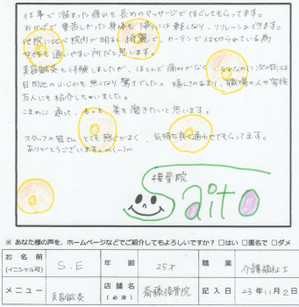 仕事で溜まった疲れも長めのマッサージでほぐしてもらってます。
おかげで重苦しかった身体も帰りには軽くなり、リフレッシュできます。
他院に比べ院内が明るく綺麗で、カーテンで仕切られている為
女性も通いやすい所だと思います。
美顔鍼灸も体験しましたが、ほとんど痛みがなく
目尻の小じわも無くなり驚きでした。嬉しさのあまり、職場の人や家族
友人にも紹介しちゃいました。
こまめに通って、もっと美を磨きたいと思います。
スタッフの皆さん、とても感じがよく、気持ち良く通わせてもらってます。
ありがとうございます。m(_ _)m
接骨院
Saito
※あなた様の声を、ホームページなどでご紹介してもよろしいですか? □はい □匿名で □ダメ
お名前(イニシャル可) S.E 年齢 25才 職業 介護福祉士
メニュー 美顔鍼灸 店舗名(必須) 斎藤接骨院 記入日 23年11月2日